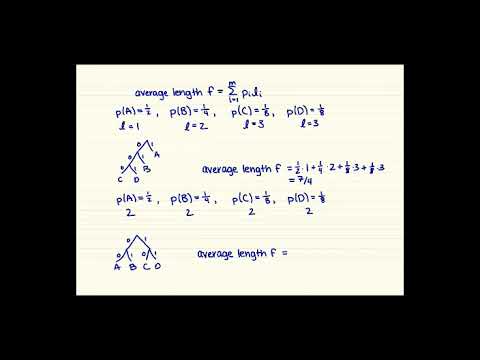 average length f = Σ_{i=1}^{m} p_i l_i
p(A)=1/2 , p(B)=1/4 , p(C)=1/8 , p(D)=1/8
l=1 l=2 l=3 l=3
0 1
0 1 A
0 1 B
C D
average length f = 1/2·1+1/4·2+1/8·3+1/8·3
= 7/4
p(A)=1/2 , p(B)=1/4 , p(C)=1/8 , p(D)=1/8
2 2 2 2
0 1
0 1 0 1
A B C D
average length f =